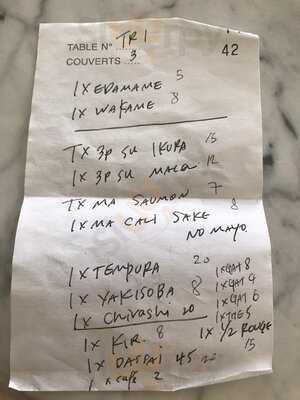 TABLE N° TR1
COUVERTS 3
42
1X EDAMAME 5
1X WAKAME 8
1X 3P SU IKURA 15
1X 3P SU MAGU 12
1X MA SAUMON 7
1X MA CALI SAKE 8
NO MAYO
1X TEMPURA 20
1X YAKISOBA 8
1X Chirashi 20
1X KIR 8
1X 1/2 ROUGE 15
1X DASSAI 45
1X Café 2